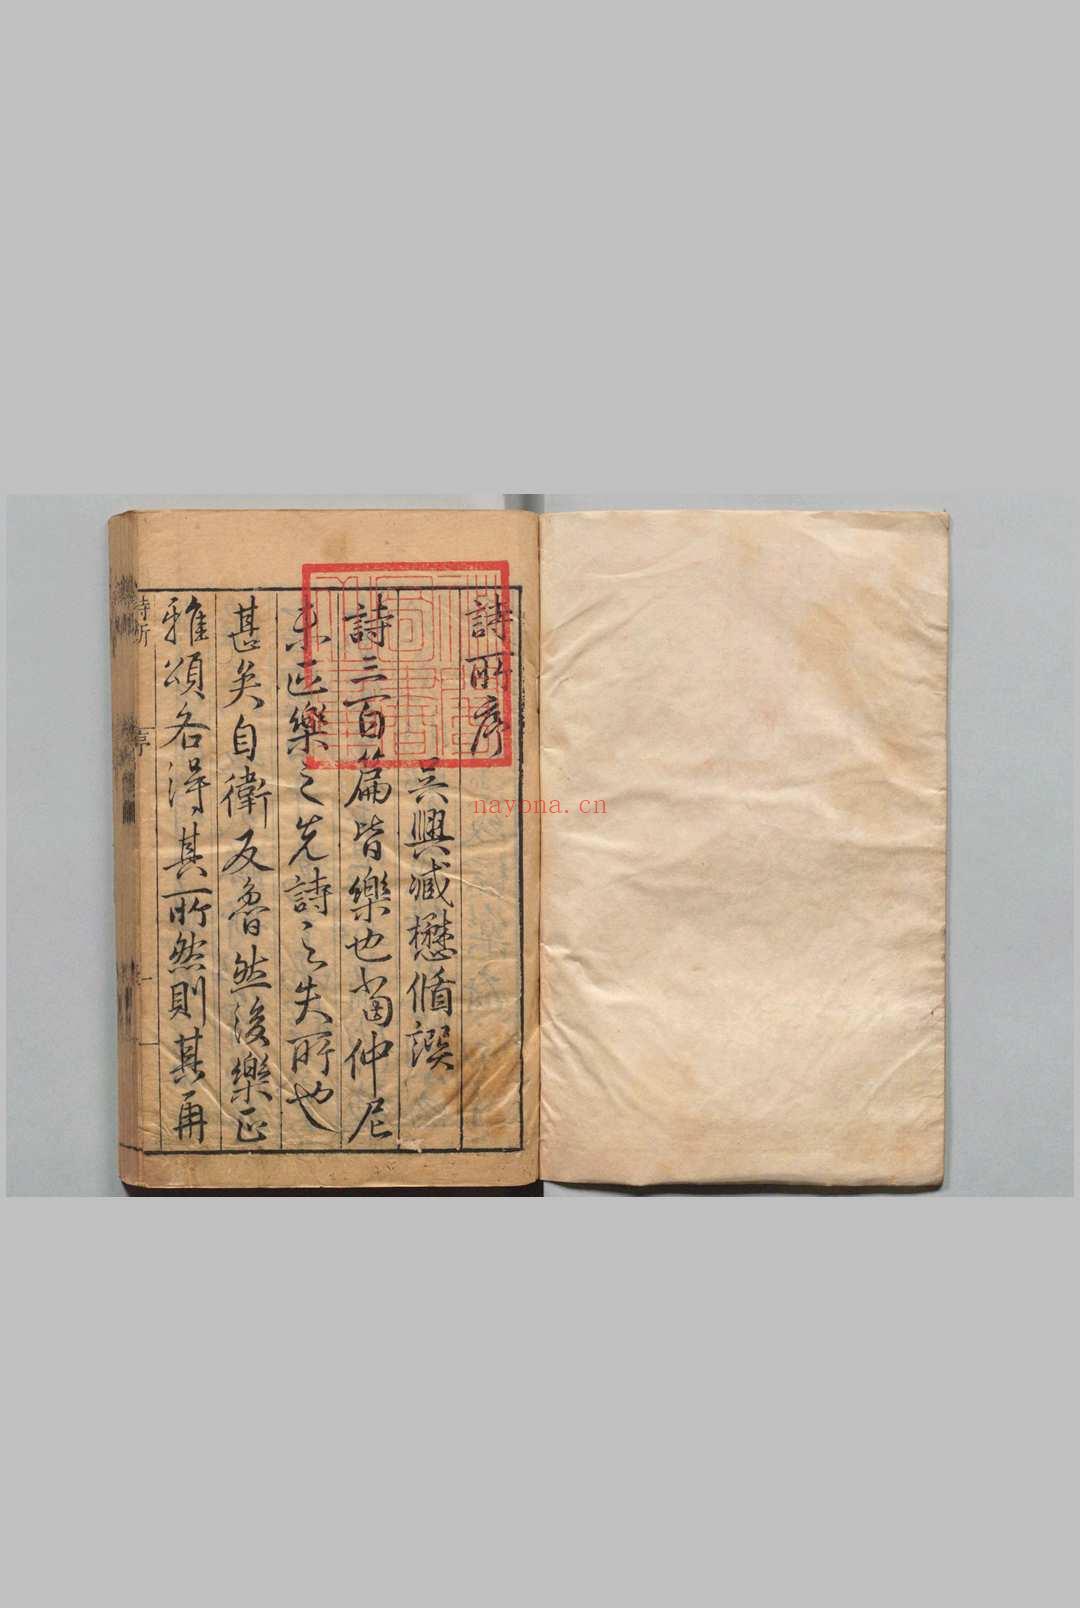 詩所序
吳興臧懋循譔
詩三百篇皆樂也當仲尼
未正樂之先詩之失所也
甚矣自衛反魯然後樂正
雅頌各得其所然則其再
詩所
序
nayona.cn